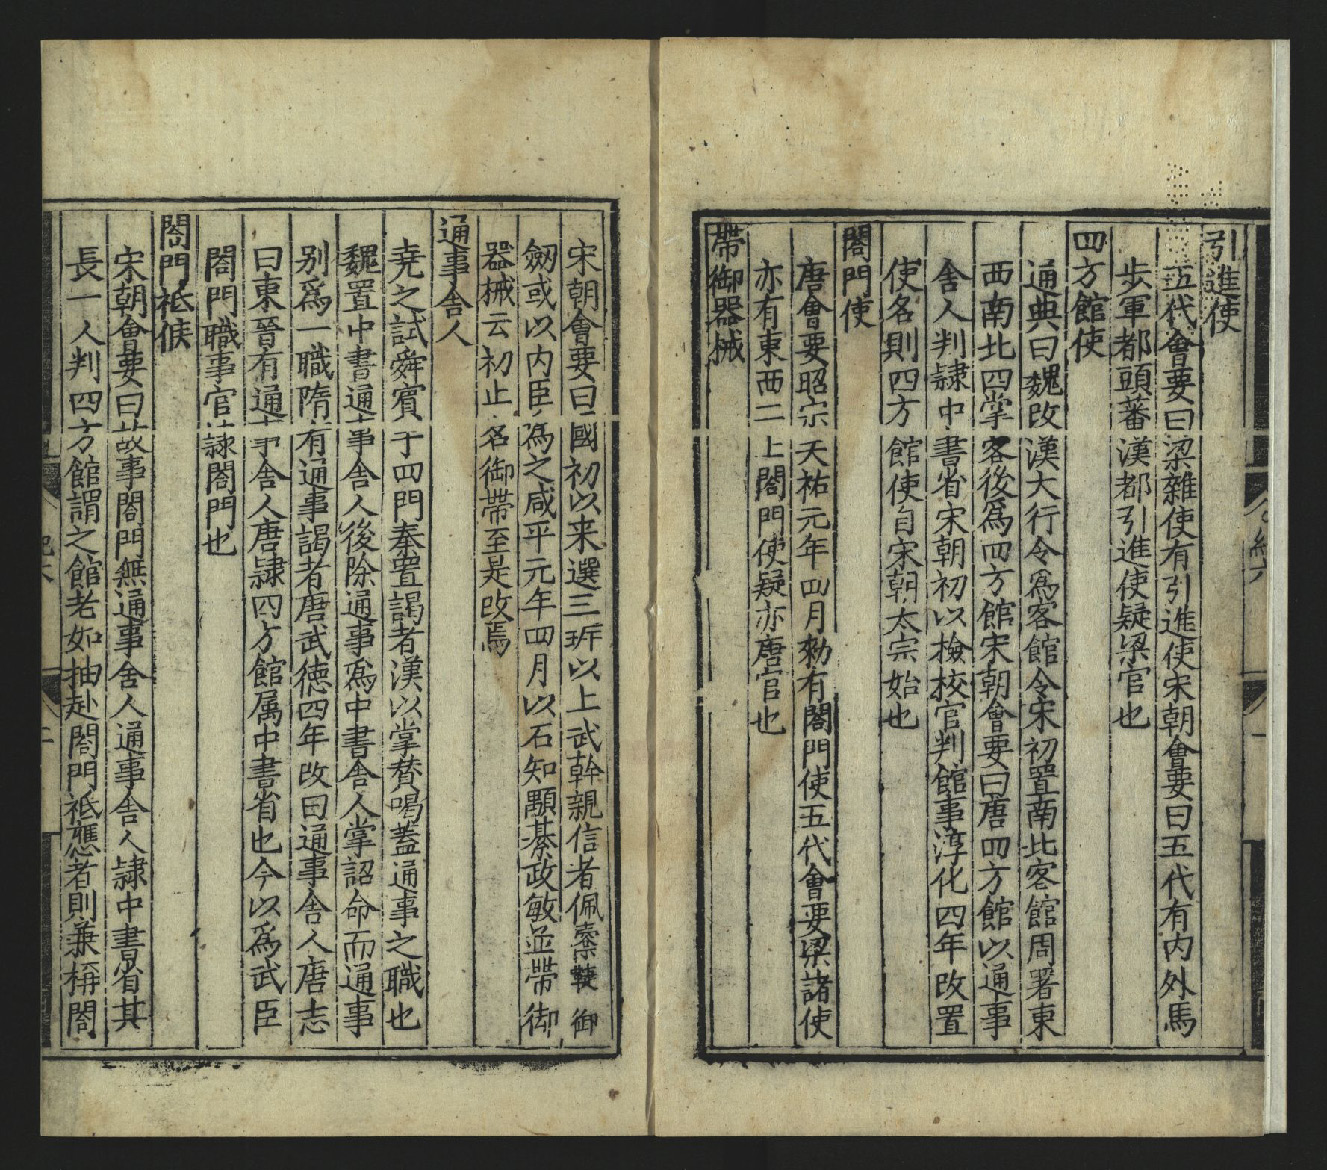 引進使
五代會要曰梁雜使有引進使宋朝會要曰五代有内外馬
步軍都頭蕃漢都引進使疑梁官也
四方館使
通典曰魏改漢大行令爲客館令宋初置南北客館周署東
西南北四掌客後爲四方館宋朝會要曰唐四方館以通事
舎人判隷中書省宋朝初以檢校官判館事淳化四年改置
使各則四方館使自宋朝太宗始也
閤門使
唐會要昭宗天祐元年四月勑有閤門使五代會要梁諸使
亦有東西二上閤門使疑亦唐官也
帶御器械
宋朝會要曰國初以来選三班以上武幹親信者佩櫜鞬御
劔或以内臣爲之咸平元年四月以石知顒綦政敏並帶御
器械云初止名御帶至是改焉
通事舎人
堯之試舜賓于四門秦置謁者漢以掌賛喝蓋通事之職也
魏置中書通事舎人後除通事爲中書舎人掌詔命而通事
别爲一職隋有通事謁者唐武徳四年改曰通事舎人唐志
曰東晉有通事舎人唐隷四方館属中書省也今以爲武臣
閤門職事官隷閤門也
閤門祗候
宋朝會要曰故事閤門無通事舎人通事舎人隷中書省其
長一人判四方館謂之館老如抽赴閤門祗應者則兼稱閤